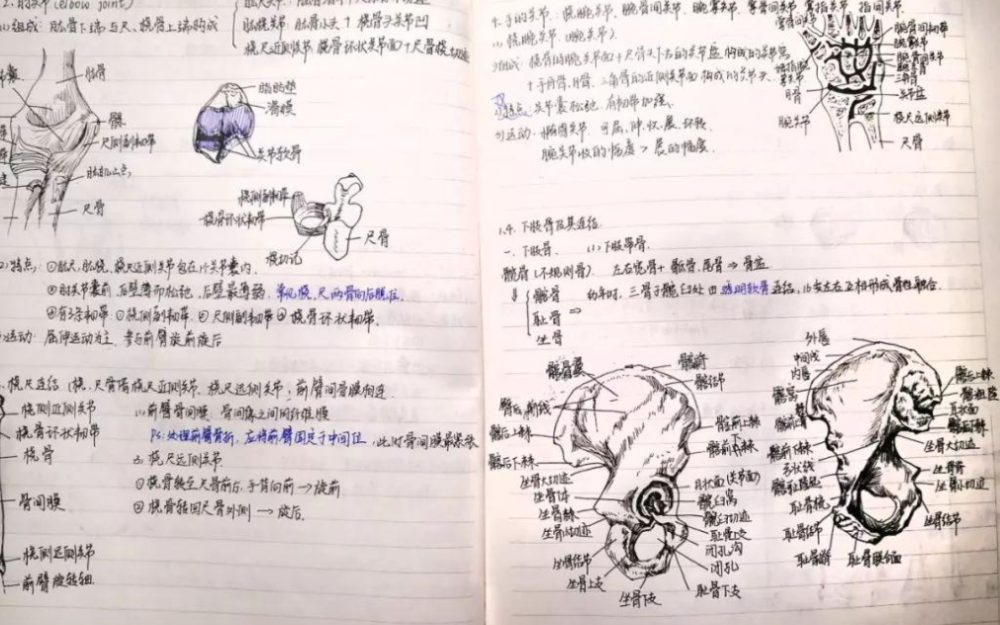 2.肘关节(elbow joint)
(1)组成:肱骨下端与尺、桡骨上端构成
肱桡关节 肱骨小头 + 桡骨头关节凹
桡尺近侧关节 桡骨环状关节面 + 尺骨桡切迹
肱骨
髁
尺侧副韧带
尺骨
脂肪垫
滑膜
关节软骨
桡侧副韧带
桡骨环状韧带
桡切迹
尺骨
2)特点:①肱尺、肱桡、桡尺近侧关节包在1个关节囊内.
②肘关节囊前、后壁薄而松弛,后壁最薄弱,常见桡、尺两骨向后脱位.
③有3条韧带 ①桡侧副韧带、②尺侧副韧带 ③桡骨环状韧带.
运动:屈伸运动为主,参与前臂旋前旋后
桡尺连结(桡、尺骨借桡尺近侧关节、桡尺远侧关节,前臂间骨膜相连
桡侧近侧关节
桡骨环状韧带
桡骨
骨间膜
桡侧远侧关节
前臂旋转轴
1.前臂骨间膜:骨间缘之间网纤维膜
Ps:处理前臂骨折,应将前臂固定于中间位,此时骨间膜最紧张
2.桡尺远侧关节.
①桡骨转至尺骨前后,手背向前→旋前
②桡骨转回尺骨外侧→旋后.
4.手的关节:桡腕关节、腕骨间关节、腕掌关节、掌骨间关节、掌指关节、指间关节.
(1)桡腕关节(腕关节).
组成:桡骨的腕关节面+尺骨头下方的关节盘 构成的关节窝
+手舟骨、月骨、三角骨的近侧关节面构成的关节头.
特点:关节囊松弛,有韧带加强.
运动:椭圆关节 可屈,伸,收,展,环转
腕关节收的幅度>展的幅度.
掌骨间关节
月骨
腕关节
腕骨间韧带
腕掌关节
腕骨间关节
三角骨
关节盘
桡尺远侧关节
尺骨
1.4.下肢骨及其连结
一.下肢骨. (1)下肢带骨.
髋骨(不规则骨) 左右髋骨+骶骨、尾骨⇒骨盆
髂骨
耻骨 ⇒
坐骨
幼年时,三骨于髋臼处由透明软骨连结,15岁左右互相形成骨性融合.
髂骨翼
臀后、前线
髂后上棘
髂后下棘
坐骨大切迹
坐骨体
坐骨棘
坐骨小切迹
坐骨结节
坐骨上支
坐骨下支
髂嵴
髂结节
髂前上棘
髂前下棘
月状面(关节面)
髋臼窝
髋臼切迹
耻骨上支
闭孔沟
闭孔
耻骨下支
外唇
中间线
内唇
髂窝
髂前上棘
髂前下棘
弓状线
髂耻隆起
耻骨梳
耻骨结节
耻骨嵴
耻骨联合面
髂后上棘
髂粗隆
耳状面
髂后下棘
坐骨大切迹
坐骨棘
坐骨小切迹
坐骨结节